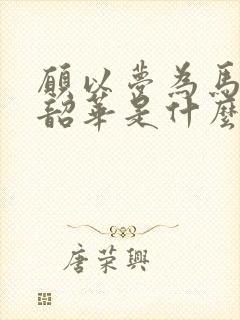 願以夢為馬
韶華是什麼
唐榮興